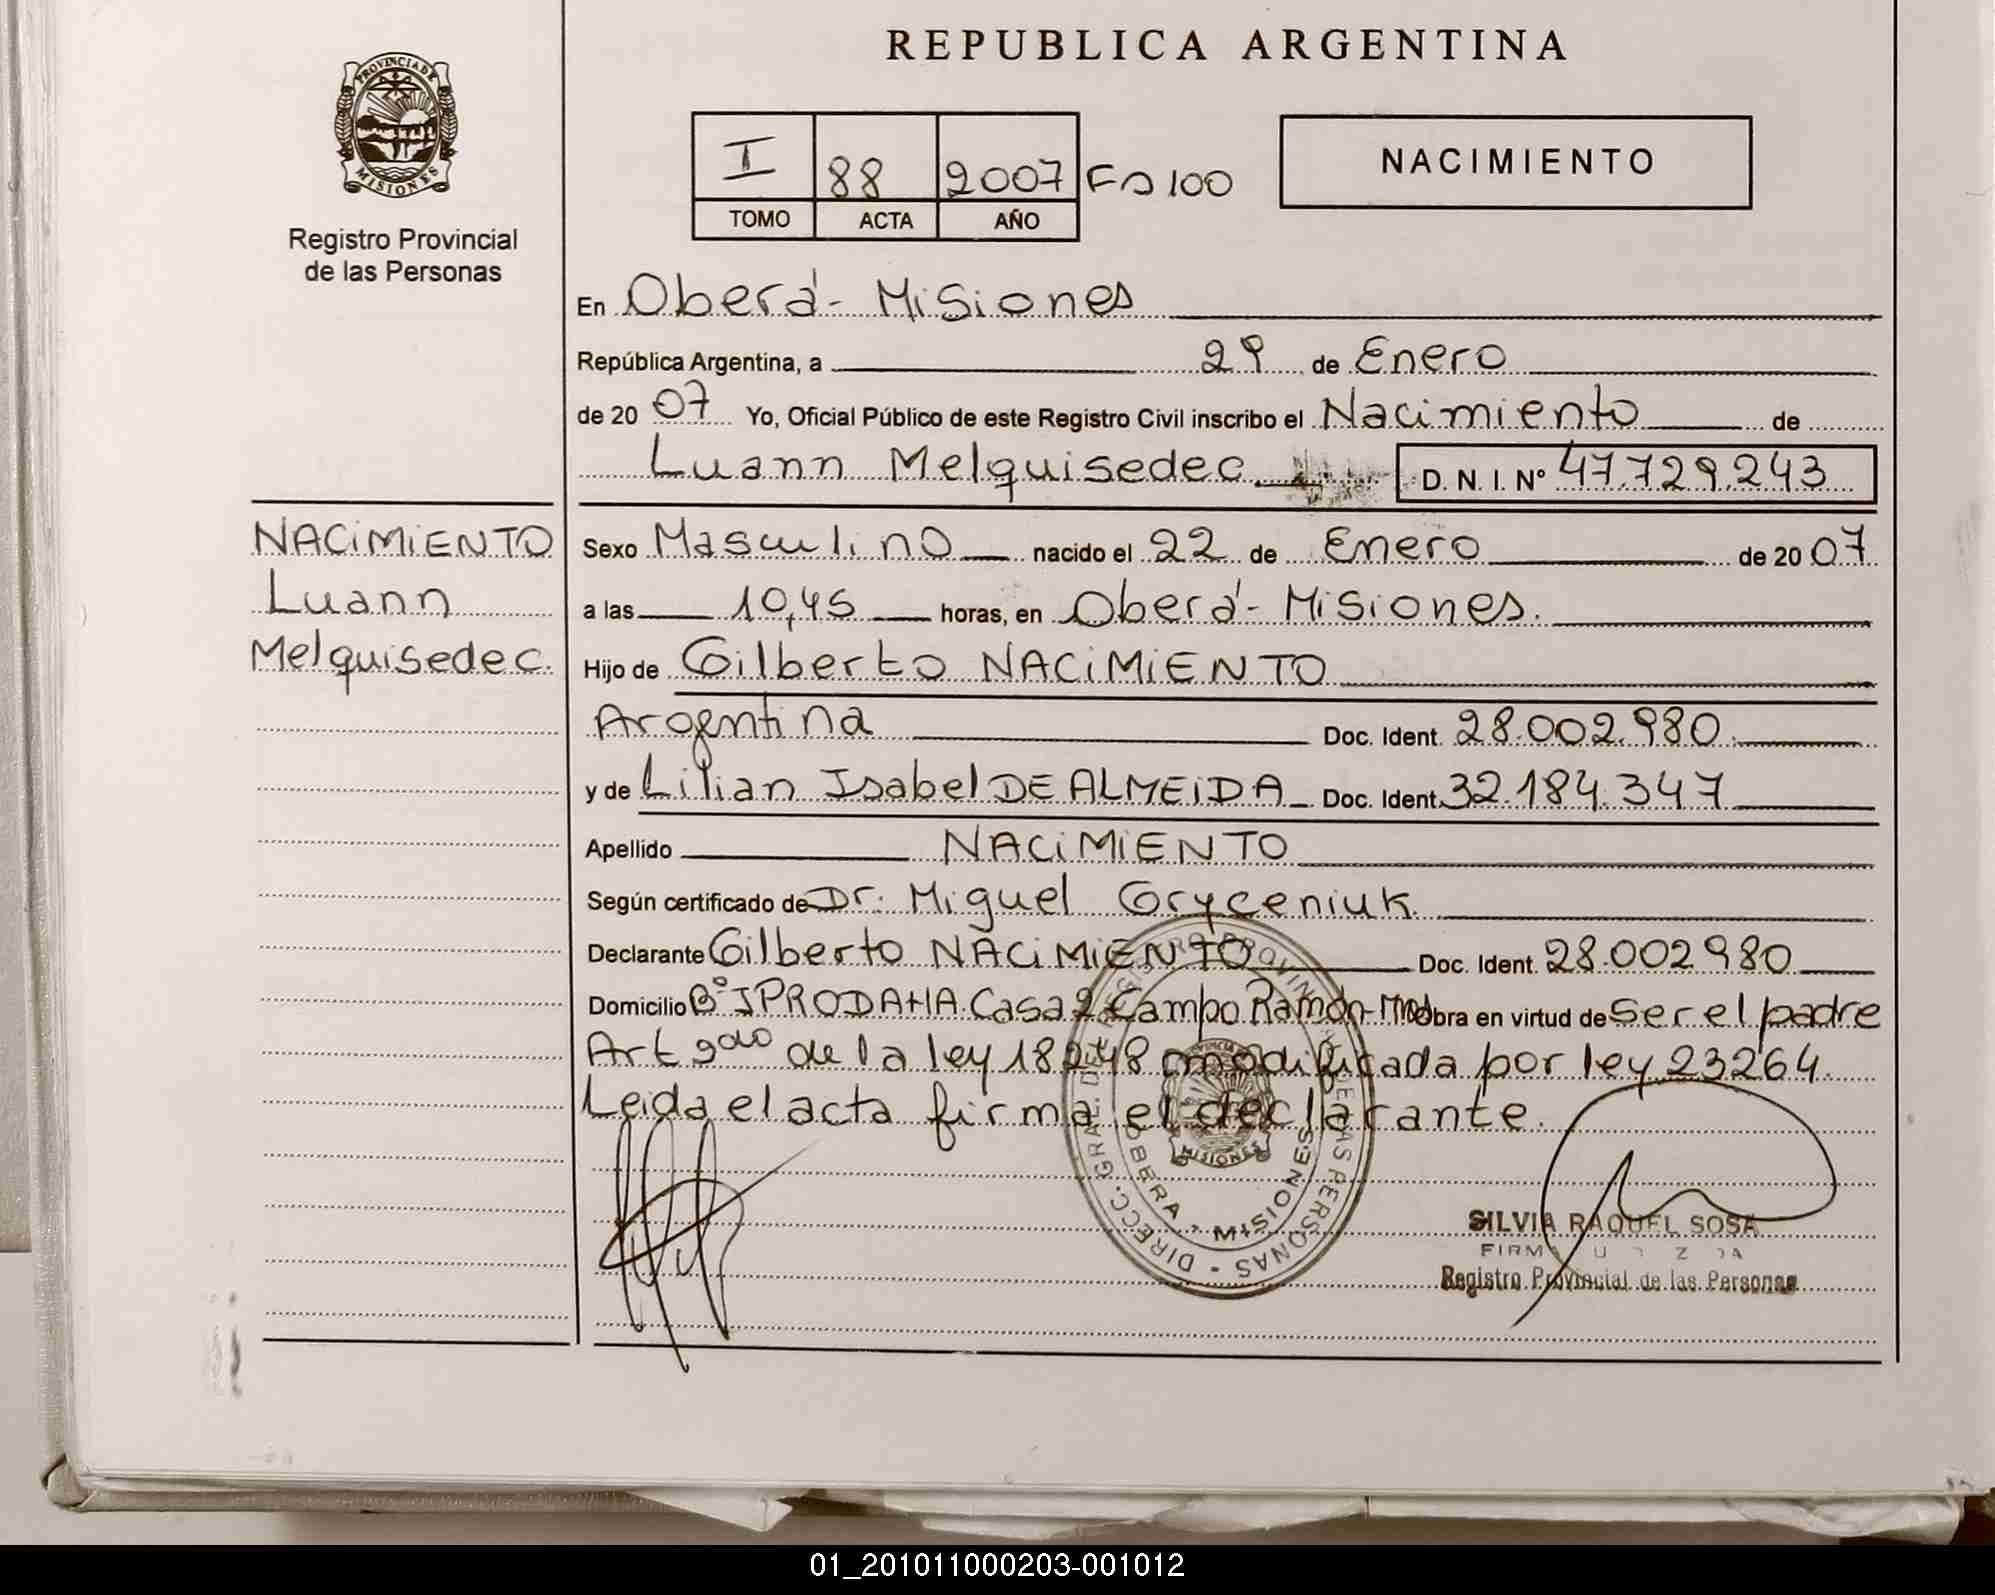 REPUBLICA ARGENTINA
PROVINCIA DE MISIONES
Registro Provincial
de las Personas
I 88 2007 Fo 100
TOMO ACTA AÑO
NACIMIENTO
En Oberá - Misiones
República Argentina, a 29 de Enero
de 20 07 Yo, Oficial Público de este Registro Civil inscribo el Nacimiento de
Luann Melquisedec D. N. I. Nº 47.729.243
NACIMIENTO
Luann
Melquisedec.
Sexo Masculino nacido el 22 de Enero de 20 07
a las 10,45 horas, en Oberá - Misiones.
Hijo de Gilberto NACIMIENTO
Argentina Doc. Ident. 28.002.980
y de Lilian Isabel DE ALMEIDA Doc. Ident. 32.184.347
Apellido NACIMIENTO
Según certificado de Dr. Miguel Gryceniuk
Declarante Gilberto NACIMIENTO Doc. Ident. 28.002980
Domicilio Bº IPRODAHA Casa 2 Campo Ramón - Mns obra en virtud de Ser el padre
Art 2do de la ley 18248 modificada por ley 23264.
Leida el acta firma el declarante.
DIRECC. GRAL. DEL REGISTRO PROVINCIAL DE LAS PERSONAS
OBERA - MISIONES
MISIONES
SILVIA RAQUEL SOSA
Registro Provincial de las Personas
01_201011000203-001012